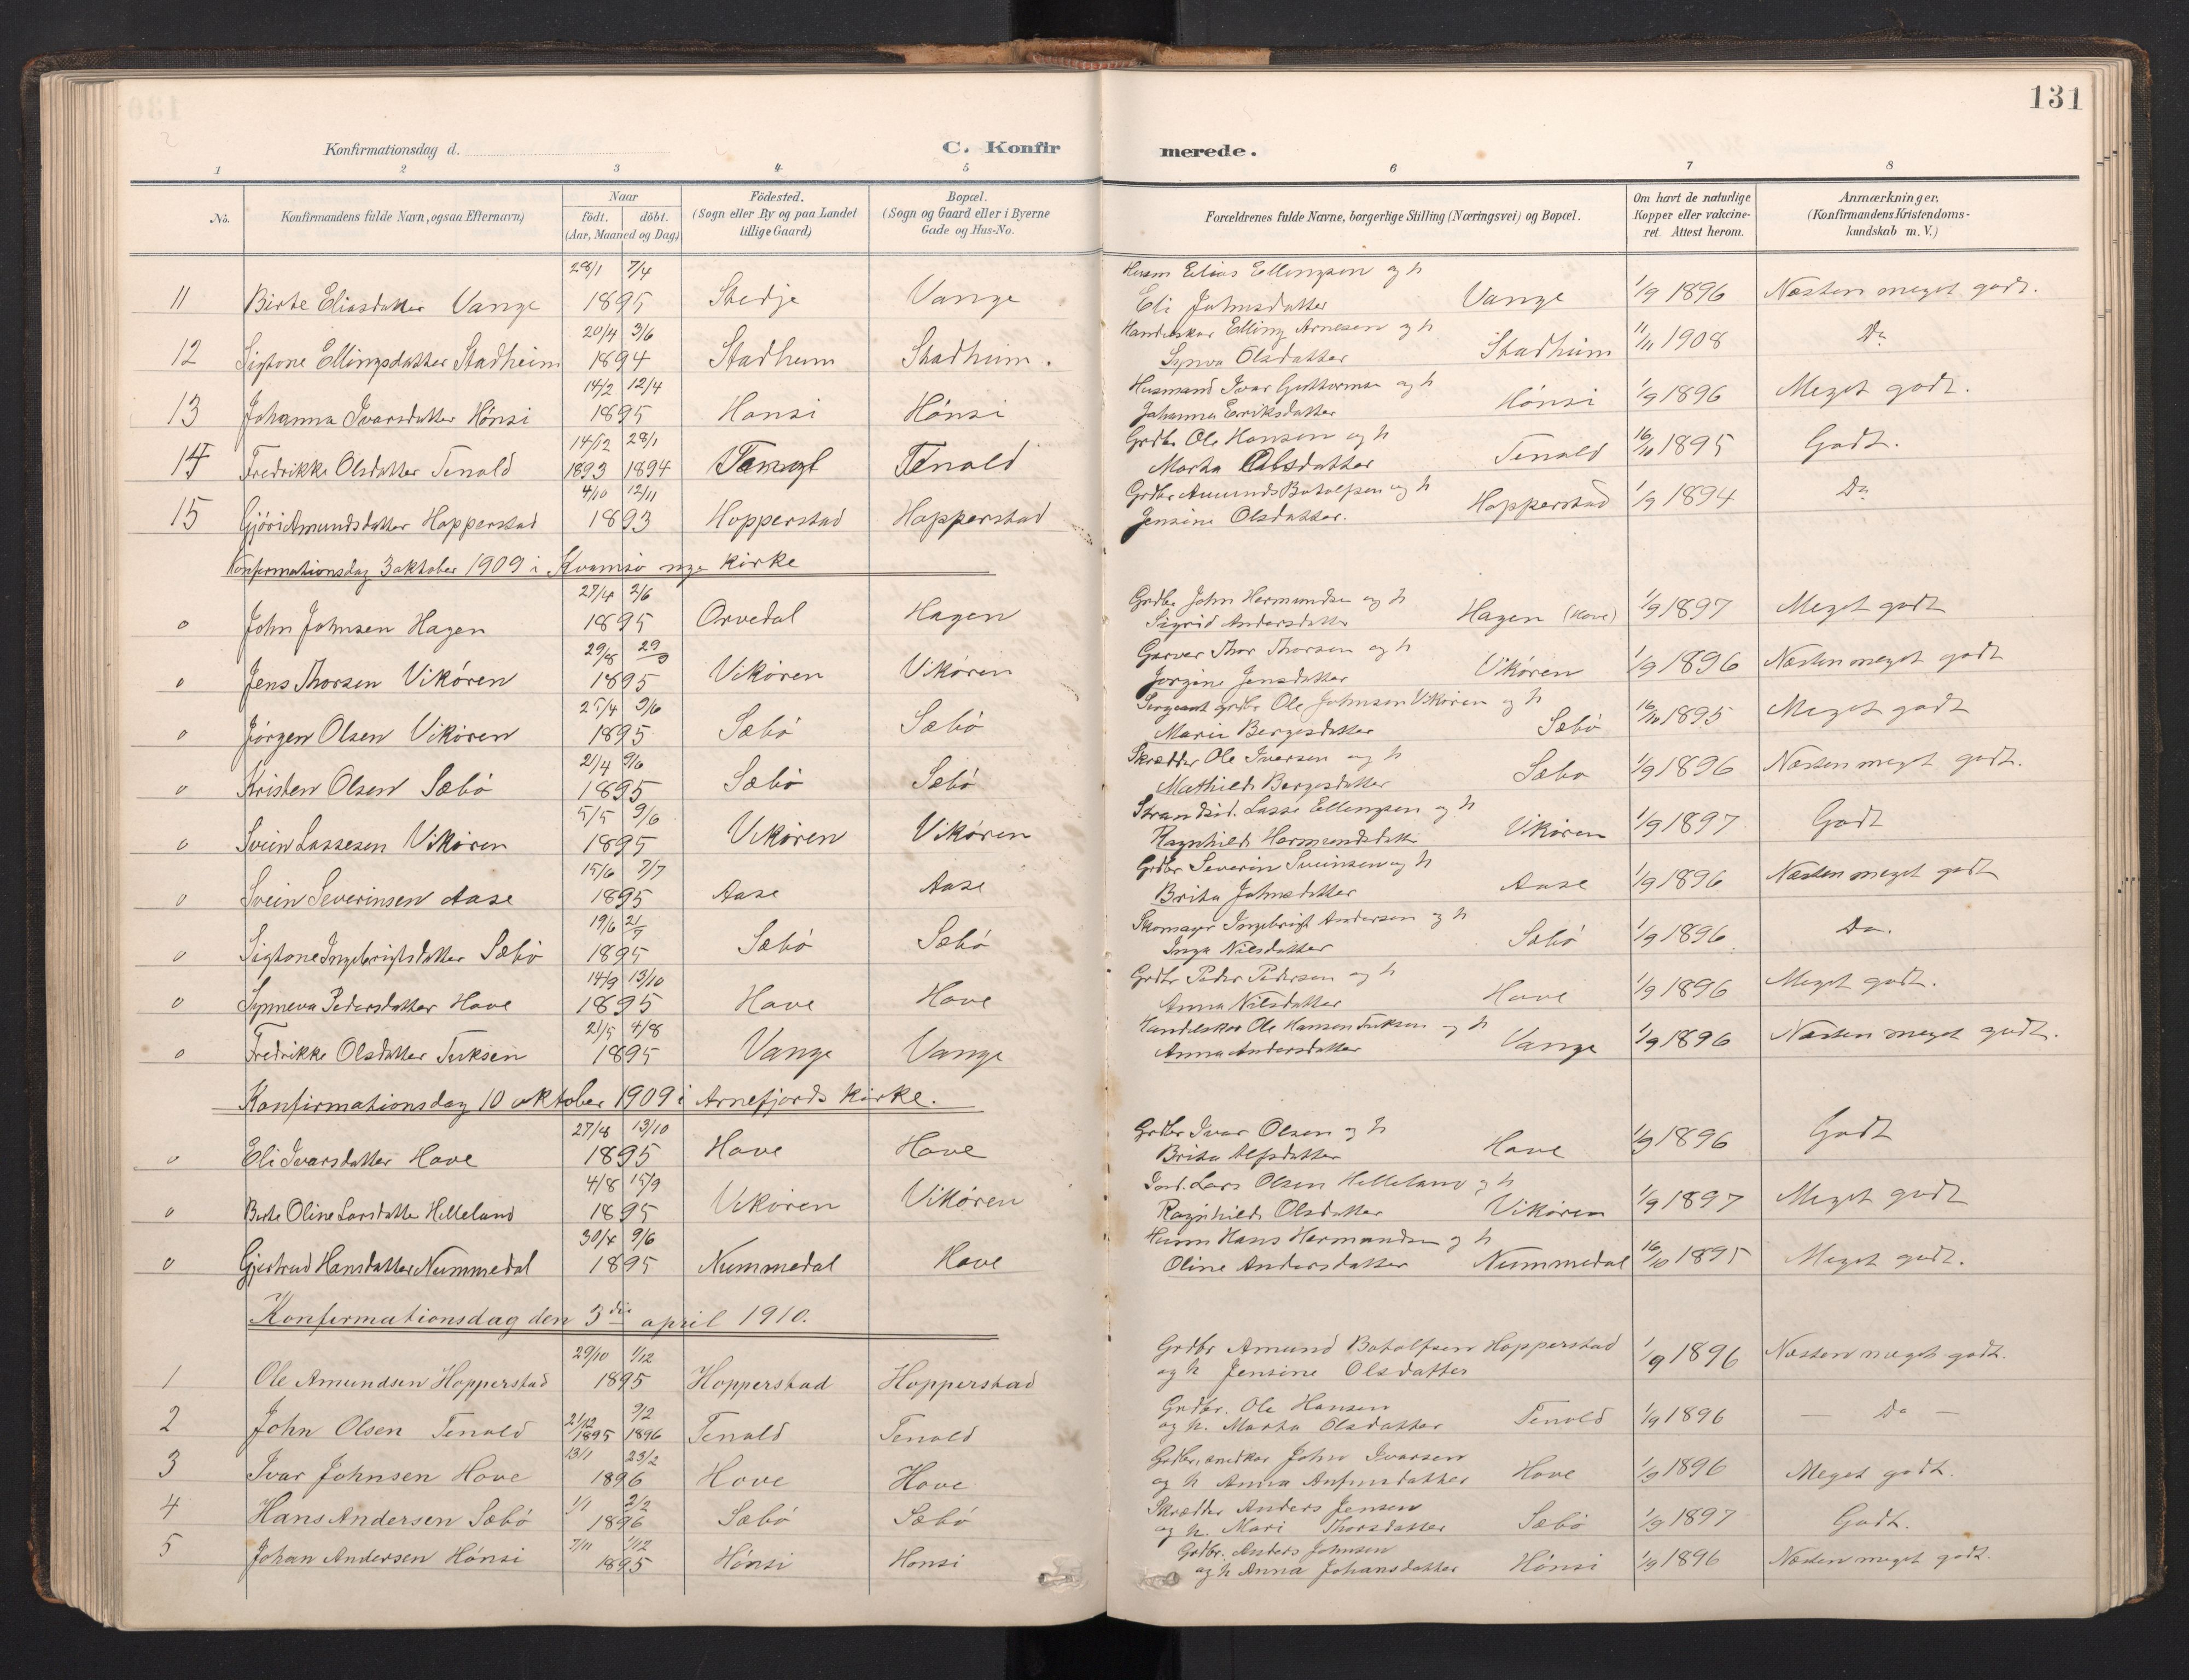 131
Konfirmationsdag d.
C. Konfirmerede.
1 2 3 4 5 6 7 8
No. Konfirmandens fulde Navn, ogsaa Efternavn) Naar födt. döbt. (Aar, Maaned og Dag) Födested. (Sogn eller By og paa Landet tillige Gaard) Bopæl. (Sogn og Gaard eller i Byerne Gade og Hus-No. Forældrenes fulde Navne, borgerlige Stilling (Næringsvei) og Bopæl. Om havt de naturlige Kopper eller vakcineret. Attest herom. Anmærkninger. (Konfirmandens Kristendomskundskab m. V.)
28/1 7/4 Husm Elias Ellingsen og h
11 Birte Eliasdatter Vange 1895 Stedje Vange Eli Johnsdatter Vange 1/9 1896 Næsten meget godt.
20/4 3/6 Handelskar Elling Arnesen og h
12 Sigtone Ellingsdatter Stadheim 1894 Stadheim Stadheim. Synva Olsdatter Stadheim 11/11 1908 Do
14/2 12/4 Husmand Ivar Guttormsen og h
13 Johanna Ivarsdatter Hönsi 1895 Hönsi Hönsi Johanna Eriksdatter Hönsi 1/9 1896 Meget godt.
14/12 28/1 Grdbr Ole Hansen og h
14 Fredrikke Olsdatter Tenold 1893 1894 Tenold Marta Olsdatter Tenold 16/10 1895 Godt.
4/10 12/11 Grdbr Amund Botolfsen og h
15 Gjöri Amundsdatter Hopperstad 1893 Hopperstad Hopperstad Jensine Olsdatter. Hopperstad 1/9 1894 Do
Konfirmationsdag 3 oktober 1909 i Kvamsö nye kirke
27/4 2/6 Grdbr John Hermundsen og h
o John Johnsen Hagen 1895 Orvedal Hagen Sigrid Andersdatter Hagen (Hove) 1/9 1897 Meget godt
29/8 29 Garver Thor Thorsen og h
o Jens Thorsen Vikören 1895 Vikören Vikören Jorgine Jensdatter Vikören 1/9 1896 Næsten meget godt
25/4 9/6 Sergeant grdbr Ole Johnsen Vikören og h
o Jörgen Olsen Vikören 1895 Sæbö Sæbö Marie Bergesdatter Sæbö 16/10 1895 Meget godt
21/4 9/6 Skrædder Ole Iversen og h
o Kristen Olsen Sæbö 1895 Sæbö Sæbö Mathilde Bergesdatter Sæbo 1/9 1896 Næsten meget godt.
5/5 9/6 Strandsid. Lasse Ellingsen og h
o Svein Lassesen Vikören 1895 Vikören Vikören Ragnhild Hermundsdatter Vikören 1/9 1897 Godt
15/6 7/7 Grdbr Severin Sveinsen og h
o Svein Severinsen Aase 1895 Aase Aase Brita Johnsdatter Aase 1/9 1896 Næsten meget godt
19/6 21/7 Skomager Ingebrigt Andersen og h
o Sigtone Ingebrigtsdatter Sæbö 1895 Sæbö Sæbö Inga Nilsdatter Sæbö 1/9 1896 Do.
14/9 13/10 Grdbr Peder Pedersen og h
o Synneva Pedersdatter Hove 1895 Hove Hove Anna Nilsdatter Hove 1/9 1896 Meget godt.
21/5 4/8 Handelskar Ole Hansen Tuksen og h
o Fredrikke Olsdatter Tuksen 1895 Vange Vange Anna Andersdatter Vange 1/9 1896 Næsten meget godt.
Konfirmationsdag 10 oktober 1909 i Arnefjords kirke.
27/8 13/10 Grdbr Ivar Olsen og h
o Eli Ivarsdatter Hove 1895 Hove Hove Brita Alfsdatter Hove 1/9 1896 Godt
4/8 15/9 Lars Olsen Helleland og h
o Birte Oline Larsdatter Helleland 1895 Vikören Vikören Ragnhild Olsdatter Vikören 1/9 1897 Meget godt
30/4 9/6 Husm Hans Hermundsen og h
o Gjertrud Hansdatter Nummedal 1895 Nummedal Hove Oline Andersdatter Nummedal 16/10 1895 Meget godt.
Konfirmationsdag den 3die april 1910.
29/10 1/12 Grdbr Amund Botolfsen Hopperstad
1 Ole Amundsen Hopperstad 1895 Hopperstad Hopperstad og h Jensine Olsdatter 1/9 1896 Næsten meget godt.
21/12 9/2 Grdbr. Ole Hansen
2 John Olsen Tenold 1895 1896 Tenold Tenold og h. Marta Olsdatter Tenold 1/9 1896 — Do —
13/1 23/2 John Ivarsen
3 Ivar Johnsen Hove 1896 Hove Hove og h Anna Hove 1/9 1896 Meget godt.
1/1 2/2 Skrædder Anders Jensen
4 Hans Andersen Sæbö 1896 Sæbö Sæbö og h. Mari Thorsdatter Sæbö 1/9 1897 Godt.
7/11 1/12 Grdbr. Anders Johnsen
5 Johan Andersen Hönsi 1895 Hönsi Honsi og h Anna Johansdatter Hönsi 1/9 1896 Næsten meget godt.